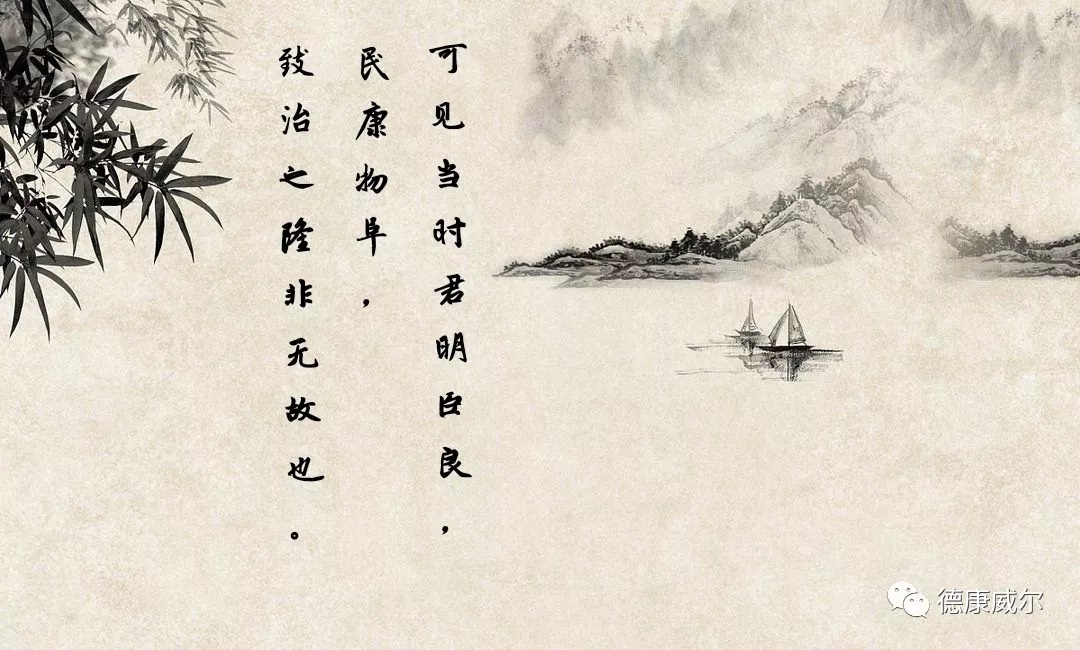 可见当时君明臣良，
民康物阜，
致治之隆非无故也。
德康威尔